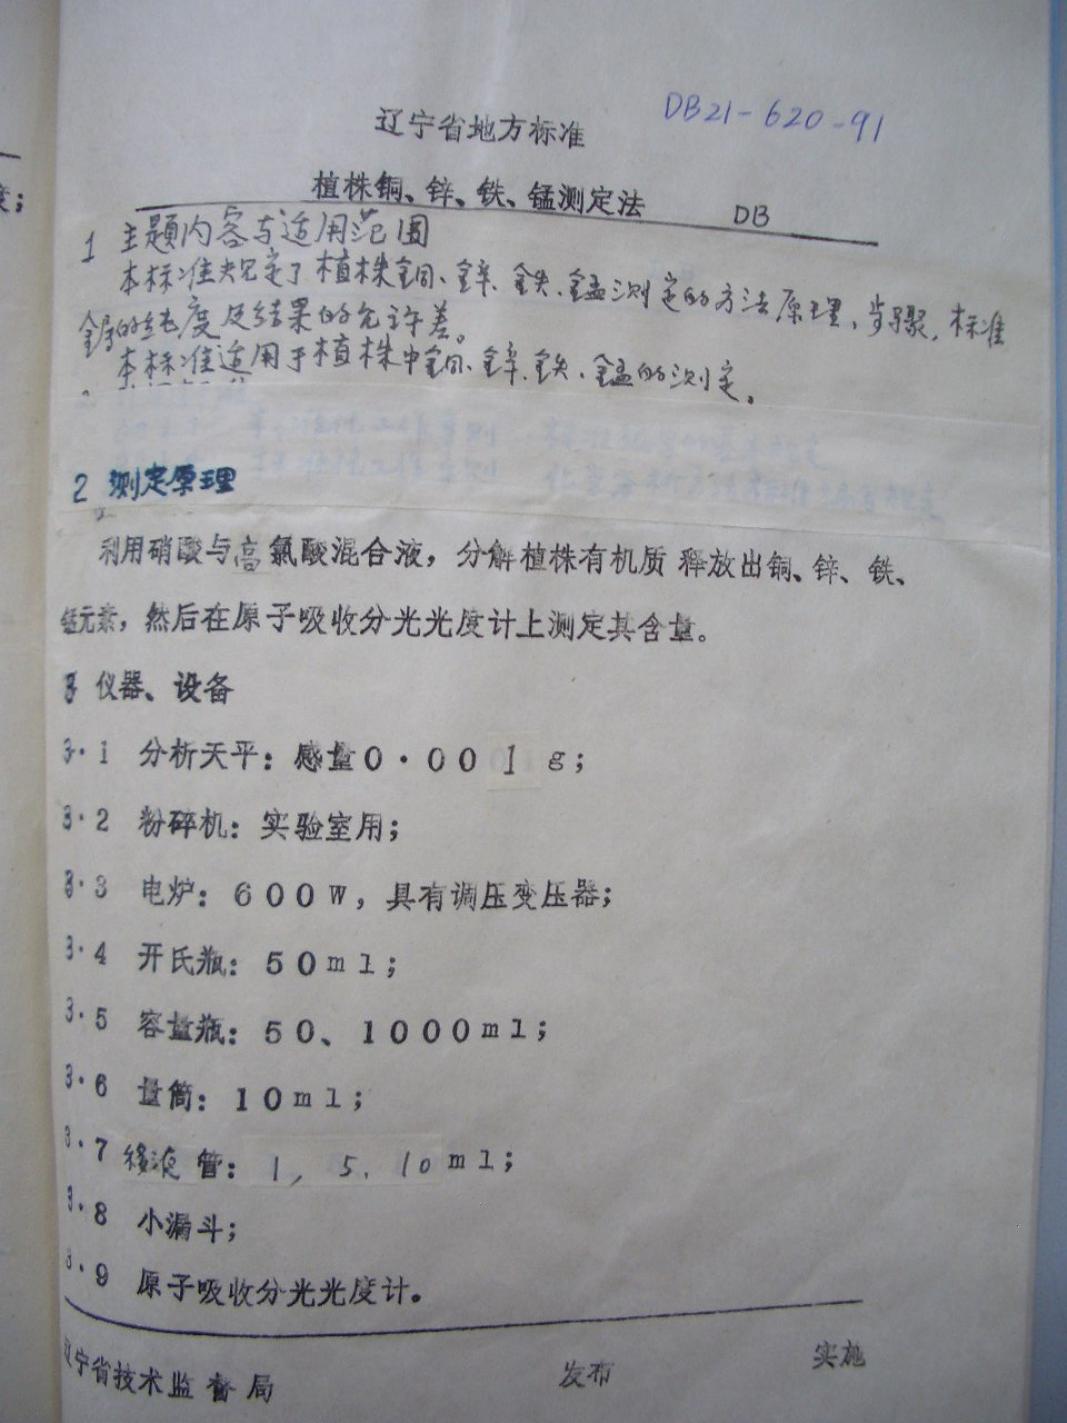 辽宁省地方标准
DB21-620-91
植株铜、锌、铁、锰测定法
DB
1 主题内容与适用范围
本标准规定了植株铜、锌、铁、锰测定的方法原理、步骤、标准
的纯度及结果的允许差。
本标准适用于植株中铜、锌、铁、锰的测定。
2 测定原理
利用硝酸与高氯酸混合液，分解植株有机质 释放出铜、锌、铁、
锰元素，然后在原子吸收分光光度计上测定其含量。
3 仪器、设备
3·1 分析天平：感量0·001g；
3·2 粉碎机：实验室用；
3·3 电炉：600W，具有调压变压器；
3·4 开氏瓶：50ml；
3·5 容量瓶：50、1000ml；
3·6 量筒：10ml；
3·7 移液管：1，5、10ml；
3·8 小漏斗；
3·9 原子吸收分光光度计。
辽宁省技术监督局 发布 实施